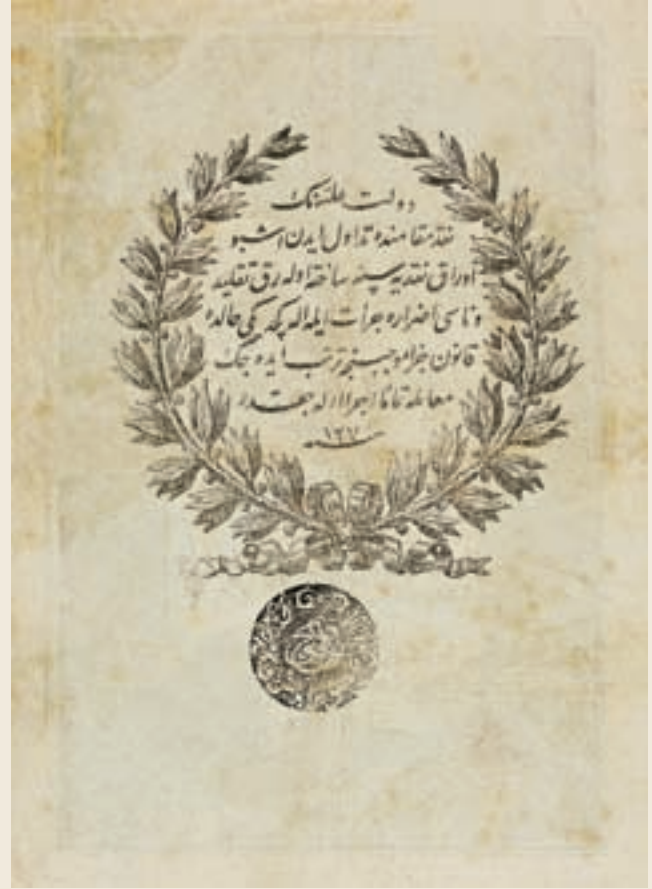 دولت علیه‌نك
نقد مقامنده تداول ایدن اشبو
اوراق نقدیه‌سنه ساخته اوله‌رق تقلید
وناسی اضراره جرأت ایله
قانون جزا موجبنجه ترتب ایده جك
معامله تماما اجرا اوله جقدر
سنه ١٢٧